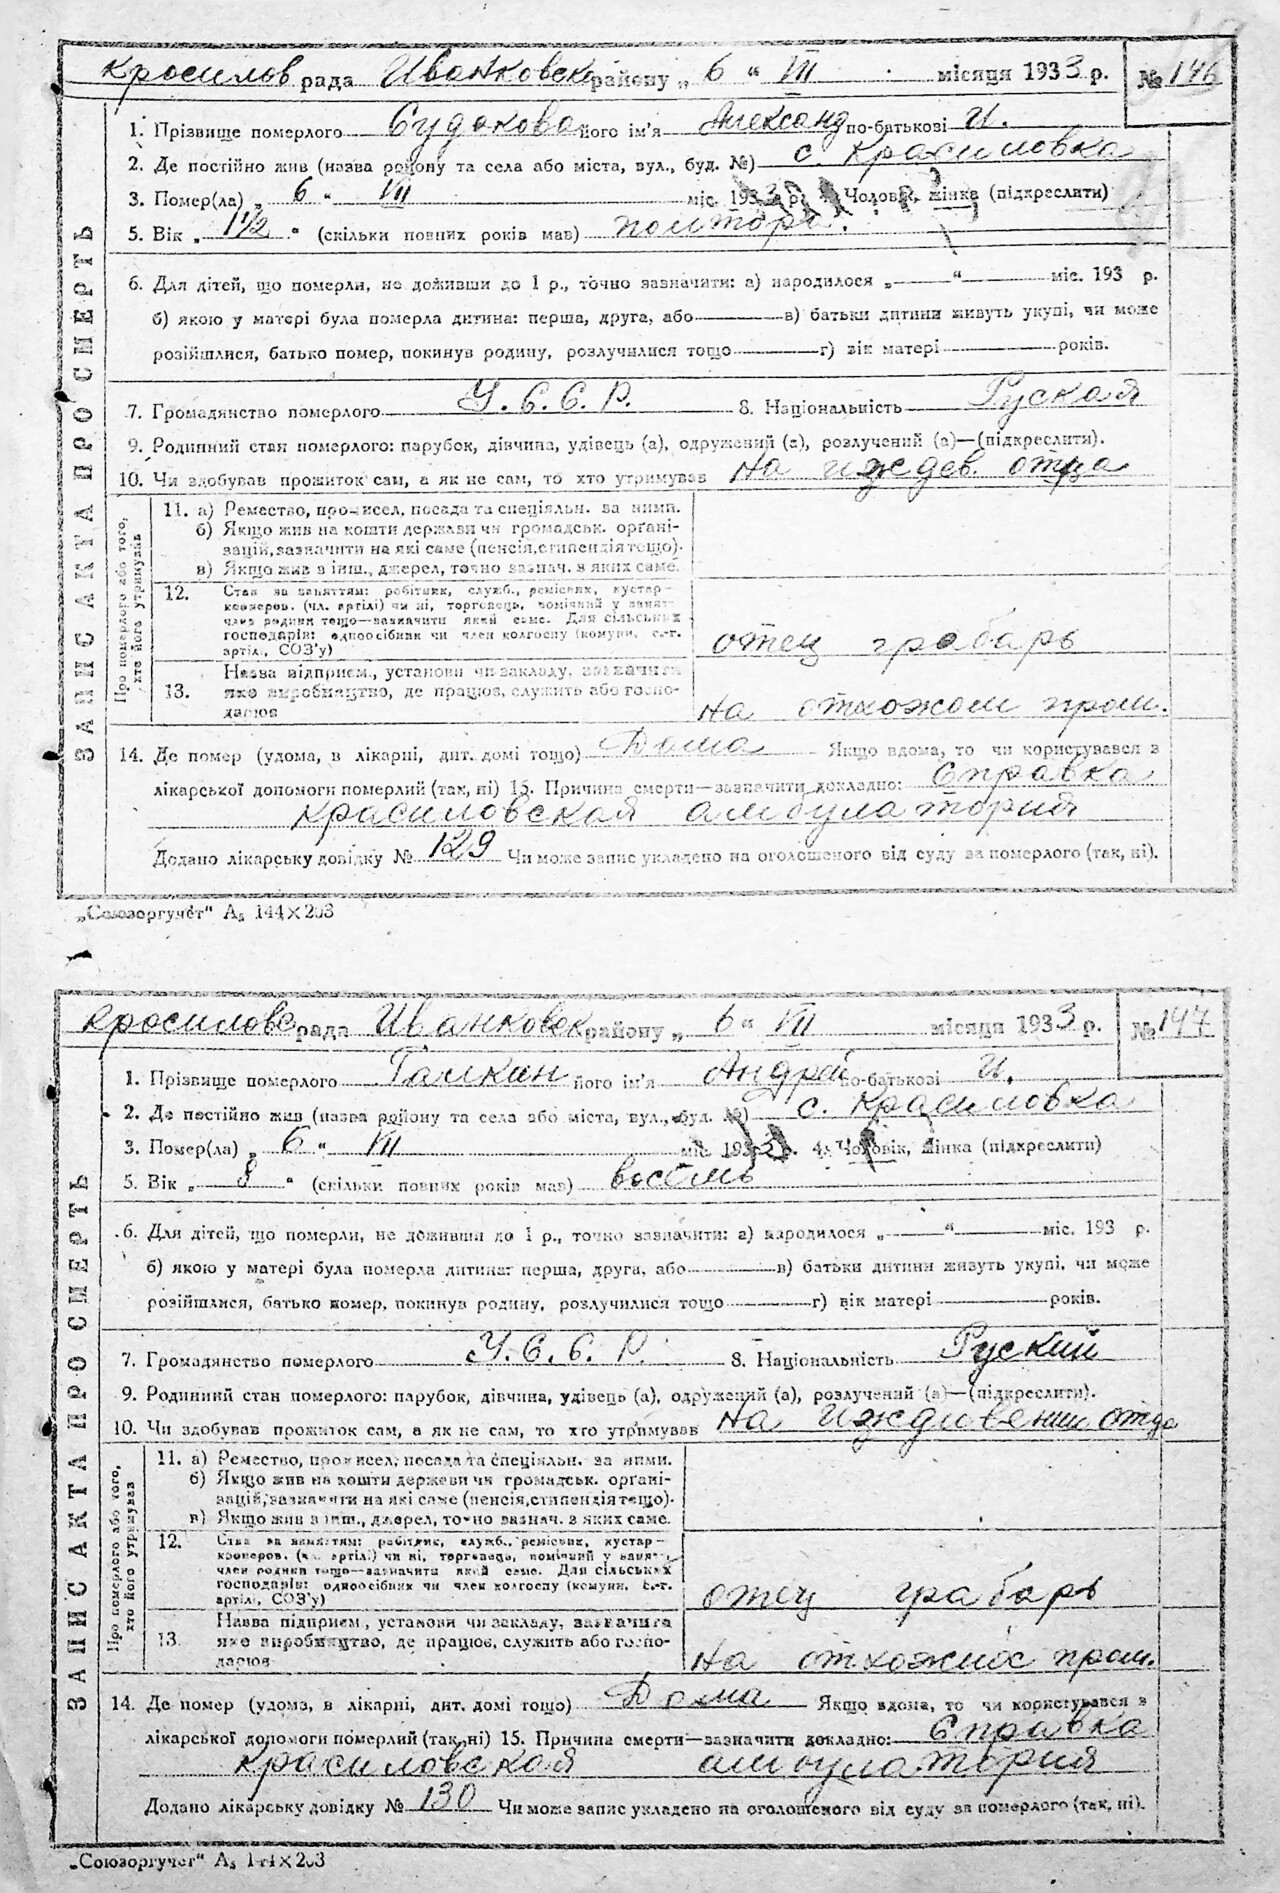 Красилов рада Иванковск району „ 6 “ VII місяця 1933 р. № 146
1. Прізвище померлого Судакова його ім'я Александ по-батькові И.
2. Де постійно жив (назва району та села або міста, вул., буд. №) с. Красиловка
3. Помер(ла) „ 6 “ VII міс. 1933 р. 4. Чоловік, жінка (підкреслити)
5. Вік „ 1½ “ (скільки повних років мав) полтора.
6. Для дітей, що померли, не доживши до 1 р., точно зазначити: а) народилося „ “ міс. 193 р.
б) якою у матері була померла дитина: перша, друга, або в) батьки дитини живуть укупі, чи може
розійшлися, батько помер, покинув родину, розлучилися тощо г) вік матері років.
7. Громадянство померлого У.С.С.Р. 8. Національність Руская
9. Родинний стан померлого: парубок, дівчина, удівець (а), одружений (а), розлучений (а)—(підкреслити).
10. Чи здобував прожиток сам, а як не сам, то хто утримував на иждев. отца
ЗАПИС АКТА ПРО СМЕРТЬ
Про померлого або того, хто його утримував
11. а) Ремество, промисел, посада та спеціяльн. за ними.
б) Якщо жив на кошти держави чи громадськ. органі-
зацій, зазначити на які саме (пенсія, стипендія тощо).
в) Якщо жив з інш., джерел, точно зазнач. з яких саме.
12. Стан за заняттям: робітник, служб., ремісник, кустар-
кооперов. (чл. артілі) чи ні, торговець, помічний у занят.
член родини тощо—зазначити який саме. Для сільських
господарів: одноосібник чи член колгоспу (комуни, с.-г.
артілі, СОЗ'у) отец грабарь
13. Назва підприєм., установи чи закладу, зазначити
яке виробництво, де працює, служить або госпо-
дарює на отхожом пром.
14. Де помер (удома, в лікарні, дит. домі тощо) Дома Якщо вдома, то чи користувався з
лікарської допомоги померлий (так, ні) 15. Причина смерти—зазначити докладно: Справка
Красиловская амбулатория
Додано лікарську довідку № 129 Чи може запис укладено на оголошеного від суду за померлого (так, ні).
„Союзоргучёт“ А₅ 144×203
Красиловс рада Иванковск району „ 6 “ VII місяця 1933 р. № 147
1. Прізвище померлого Галкин його ім'я Андрей по-батькові И.
2. Де постійно жив (назва району та села або міста, вул., буд. №) с. Красиловка
3. Помер(ла) „ 6 “ VII міс. 1933 р. 4. Чоловік, жінка (підкреслити)
5. Вік „ 8 “ (скільки повних років мав) восемь
6. Для дітей, що померли, не доживши до 1 р., точно зазначити: а) народилося „ “ міс. 193 р.
б) якою у матері була померла дитина: перша, друга, або в) батьки дитини живуть укупі, чи може
розійшлися, батько помер, покинув родину, розлучилися тощо г) вік матері років.
7. Громадянство померлого У.С.С.Р. 8. Національність Руский
9. Родинний стан померлого: парубок, дівчина, удівець (а), одружений (а), розлучений (а)—(підкреслити).
10. Чи здобував прожиток сам, а як не сам, то хто утримував на иждивении отца
ЗАПИС АКТА ПРО СМЕРТЬ
Про померлого або того, хто його утримував
11. а) Ремество, промисел, посада та спеціяльн. за ними.
б) Якщо жив на кошти держави чи громадськ. органі-
зацій, зазначити на які саме (пенсія, стипендія тощо).
в) Якщо жив з інш., джерел, точно зазнач. з яких саме.
12. Стан за заняттям: робітник, служб., ремісник, кустар-
кооперов. (чл. артілі) чи ні, торговець, помічний у занят.,
член родини тощо—зазначити який саме. Для сільських
господарів: одноосібник чи член колгоспу (комуни, с.-г.
артілі, СОЗ'у) отец грабарь
13. Назва підприєм., установи чи закладу, зазначити
яке виробництво, де працює, служить або госпо-
дарює на отхожиос пром.
14. Де помер (удома, в лікарні, дит. домі тощо) Дома Якщо вдома, то чи користувався з
лікарської допомоги померлий (так, ні) 15. Причина смерти—зазначити докладно: Справка
Красиловская амбулатория
Додано лікарську довідку № 130 Чи може запис укладено на оголошеного від суду за померлого (так, ні).
„Союзоргучёт“ А₅ 144×203